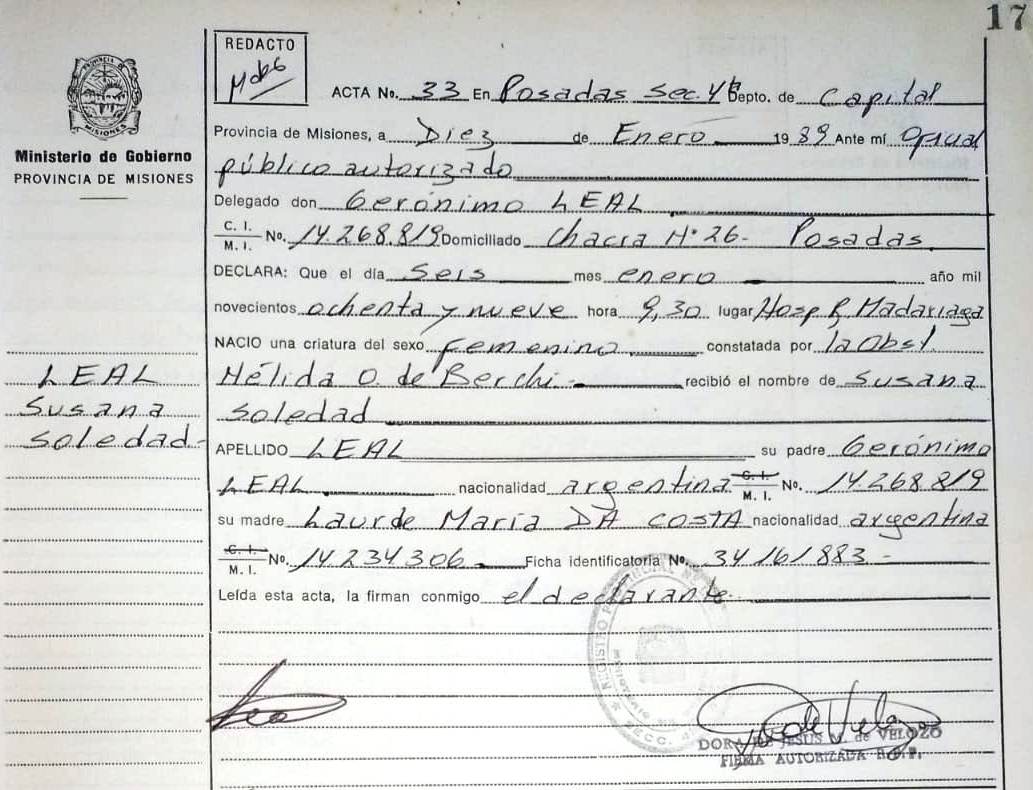 17
REDACTO
ACTA No. 33 En Posadas Sec. 4ta Depto. de Capital
Provincia de Misiones, a Diez de Enero 1989 Ante mí Oficial
público autorizado
Delegado don Gerónimo LEAL
C. I.
M. I. No. 14.268.819 Domiciliado Chacra Nº 26 - Posadas
DECLARA: Que el día Seis mes enero año mil
novecientos ochenta y nueve hora 9,30 lugar Hosp R, Madariaga
NACIO una criatura del sexo femenino constatada por la Obst.
Nélida O. de Berchi - recibió el nombre de Susana
Soledad
APELLIDO LEAL su padre Gerónimo
LEAL nacionalidad argentina C. I. M. I. No. 14.268.819
su madre Laurde María DA COSTA nacionalidad argentina
C. I.
M. I. No. 14.234.306 Ficha identificatoria No. 34161883 -
Leída esta acta, la firman conmigo el declarante.
PROVINCIA DE
MISIONES
Ministerio de Gobierno
PROVINCIA DE MISIONES
LEAL
Susana
Soledad -
REGISTRO PROVINCIAL
SECC. 4
DORA DE JESUS M. de VELOZO
FIRMA AUTORIZADA R.P.P.